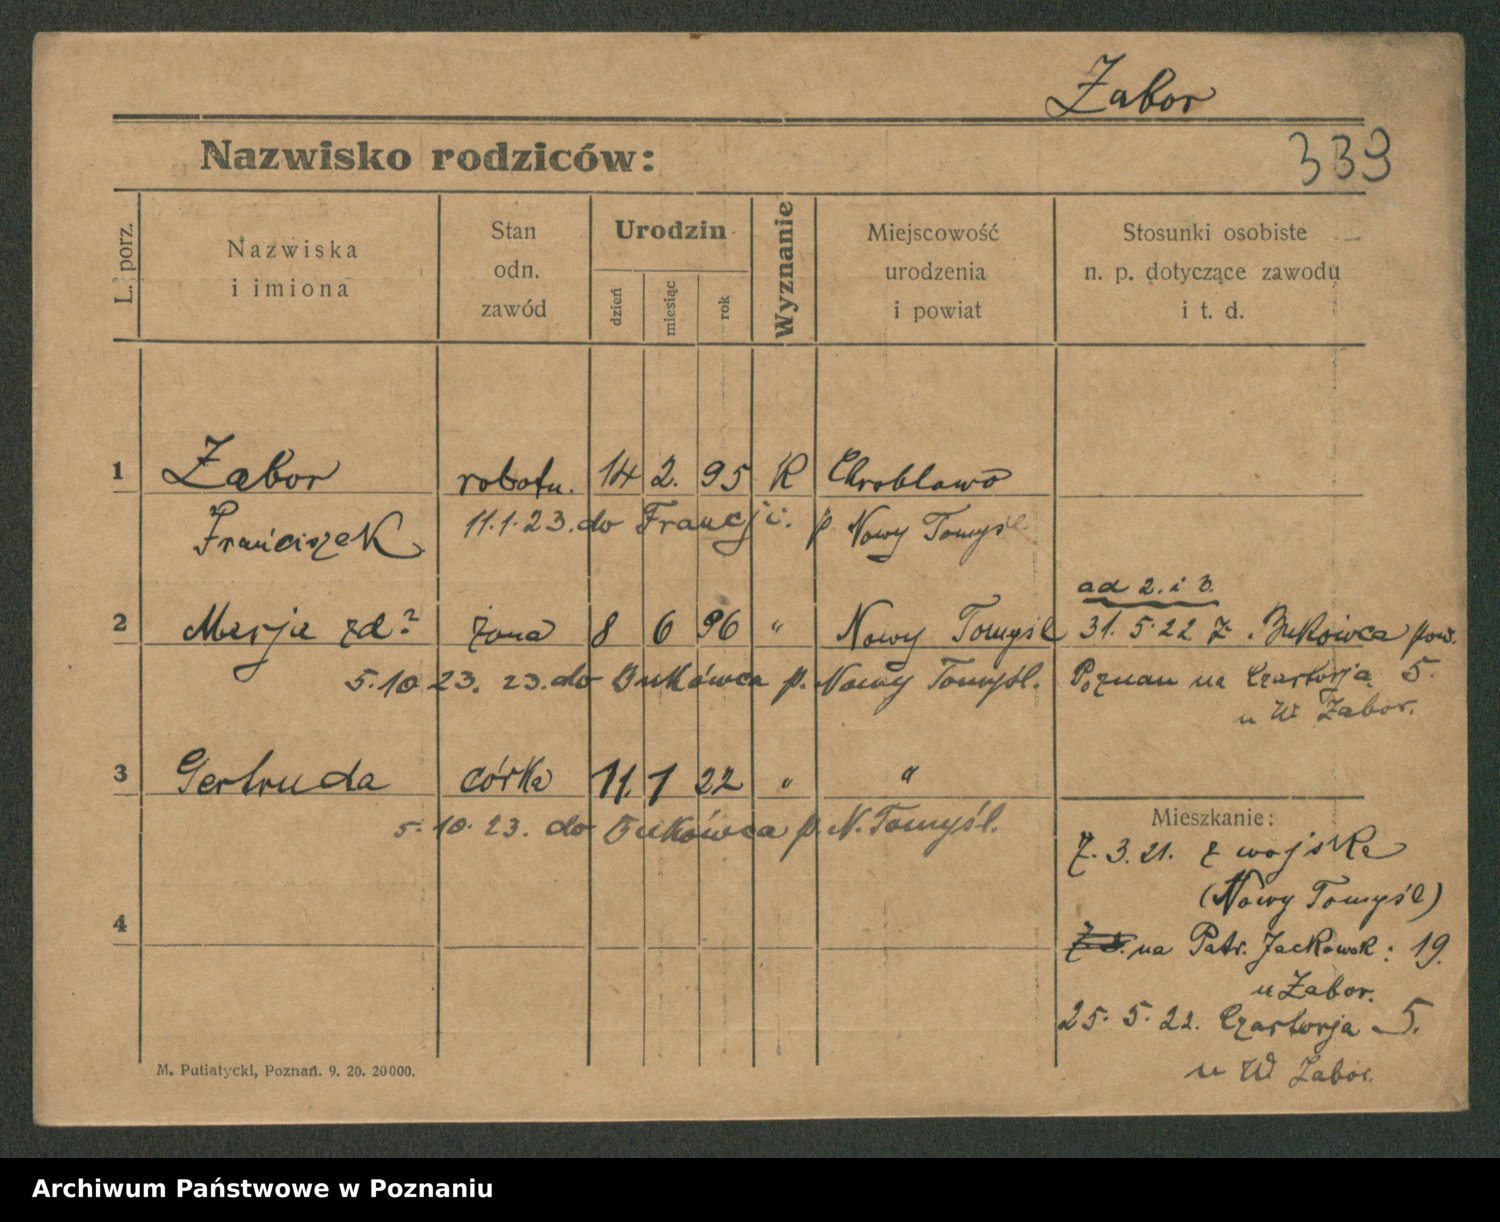 Żabor
Nazwisko rodziców:
339
L. porz.
Nazwiska
i imiona
Stan
odn.
zawód
Urodzin
dzień
miesiąc
rok
Wyznanie
Miejscowość
urodzenia
i powiat
Stosunki osobiste
n. p. dotyczące zawodu
i t. d.
1 Żabor robotn. 14 2. 95 R Chroblewo
Franciszek 11.1.23. do Francji. p. Nowy Tomyśl
ad 2. i 3.
2 Marja zd? żona 8 6 96 " Nowy Tomyśl 31. 5. 22 z Bukówca pow.
5.10.23. 23. do Bukówca p. Nowy Tomyśl. Poznań na Czartorja 5.
u W Żabor.
3 Gertruda córka 11. 1 22 " "
5. 10. 23. do Bukówca p. N. Tomyśl.
Mieszkanie:
7. 3. 21. z wojska
(Nowy Tomyśl)
4
na Patr. Jackowsk: 19.
u Żabor.
25. 5. 22. Czartorja 5.
u W Żabor.
M. Putiatycki, Poznań. 9. 20. 20000.
Archiwum Państwowe w Poznaniu